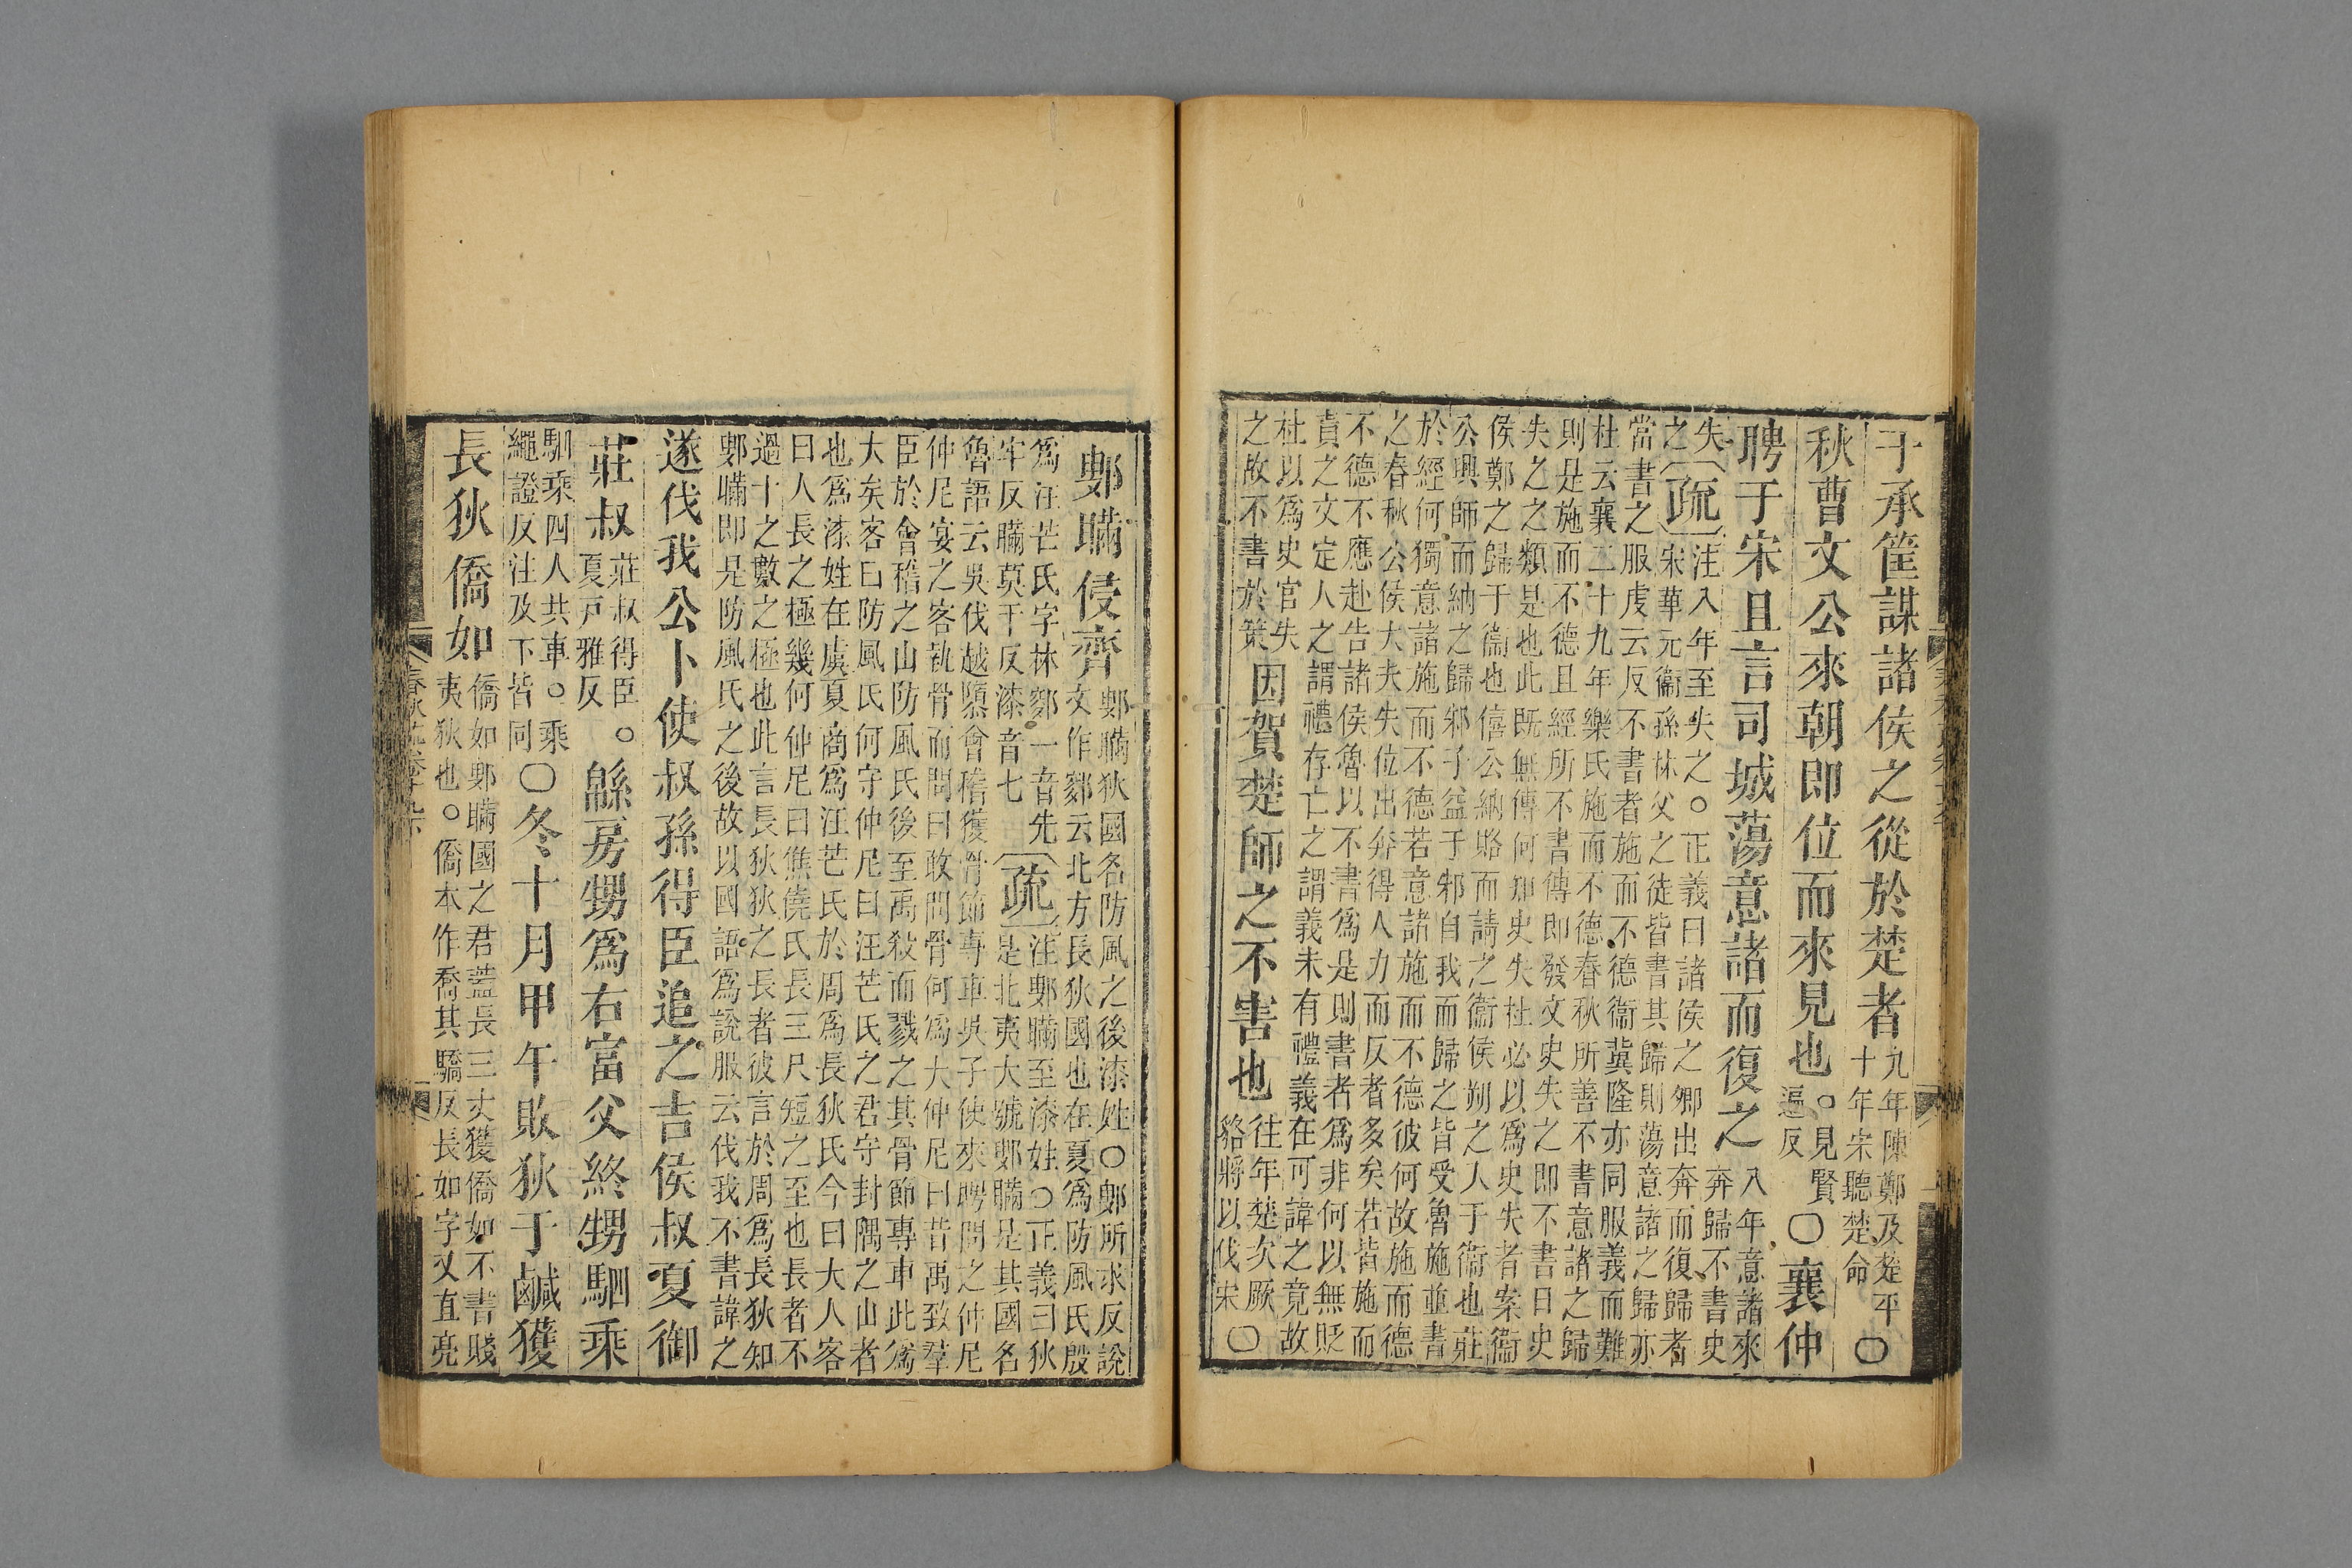 于承筐謀諸侯之從於楚者
九年陳鄭及楚平
十年宋聽楚命
○
秋曹文公來朝即位而來見也
○見賢
遍反
○襄仲
聘于宋且言司城蕩意諸而復之
八年意諸來
奔歸不書史
失
之
疏
注八年至失之○正義曰諸侯之卿出奔而復歸者
宋華元衞孫林父之徒皆書其歸則蕩意諸之歸亦
當書之服虔云反不書者施而不德衞冀隆亦同服義而難
杜云襄二十九年樂氏施而不德春秋所善不書意諸之歸
則是施而不德且經所不書傳即發文史失之即不書日史
失之之類是也此既無傳何知史失杜必以爲史失者案衞
侯鄭之歸于衞也僖公納賂而請之衞侯朔之入于衞也莊
公興師而納之歸邾子益于邾自我而歸之皆受魯施並書
於經何獨意諸施而不德若意諸施而不德彼何故施而德
之春秋公侯大夫失位出奔得人力而反者多矣若皆施而
不德不應赴告諸侯魯以不書爲是則書者爲非何以無貶
責之文定人之謂禮存亡之謂義未有禮義在可諱之竟故
杜以爲史官失
之故不書於策
因賀楚師之不害也
往年楚次厥
貉將以伐宋
○
鄋瞞侵齊
鄋瞞狄國名防風之後漆姓○鄋所求反說
文作鄋云北方長狄國也在夏爲防風氏殷
爲汪芒氏字林鄋一音先
牢反瞞莫干反漆音七
疏
注鄋瞞至漆姓○正義曰狄
是北夷大號鄋瞞是其國名
魯語云吳伐越隳會稽獲骨節專車吳子使來聘問之仲尼
仲尼宴之客執骨而問曰敢問骨何爲大仲尼曰昔禹致羣
臣於會稽之山防風氏後至禹殺而戮之其骨節專車此爲
大矣客曰防風氏何守仲尼曰汪芒氏之君守封隅之山者
也爲漆姓在虞夏商爲汪芒氏於周爲長狄氏今曰大人客
曰人長之極幾何仲尼曰僬僥氏長三尺短之至也長者不
過十之數之極也此言長狄狄之長者彼言於周爲長狄知
鄋瞞即是防風氏之後故以國語爲說服云伐我不書諱之
遂伐我公卜使叔孫得臣追之吉侯叔夏御
莊叔
莊叔得臣○
夏戸雅反
緜房甥爲右富父終甥駟乘
駟乘四人共車○乘
繩證反注及下皆同
○冬十月甲午敗狄于鹹獲
長狄僑如
僑如鄋瞞國之君蓋長三丈獲僑如不書賤
夷狄也○僑本作喬其驕反長如字又直亮